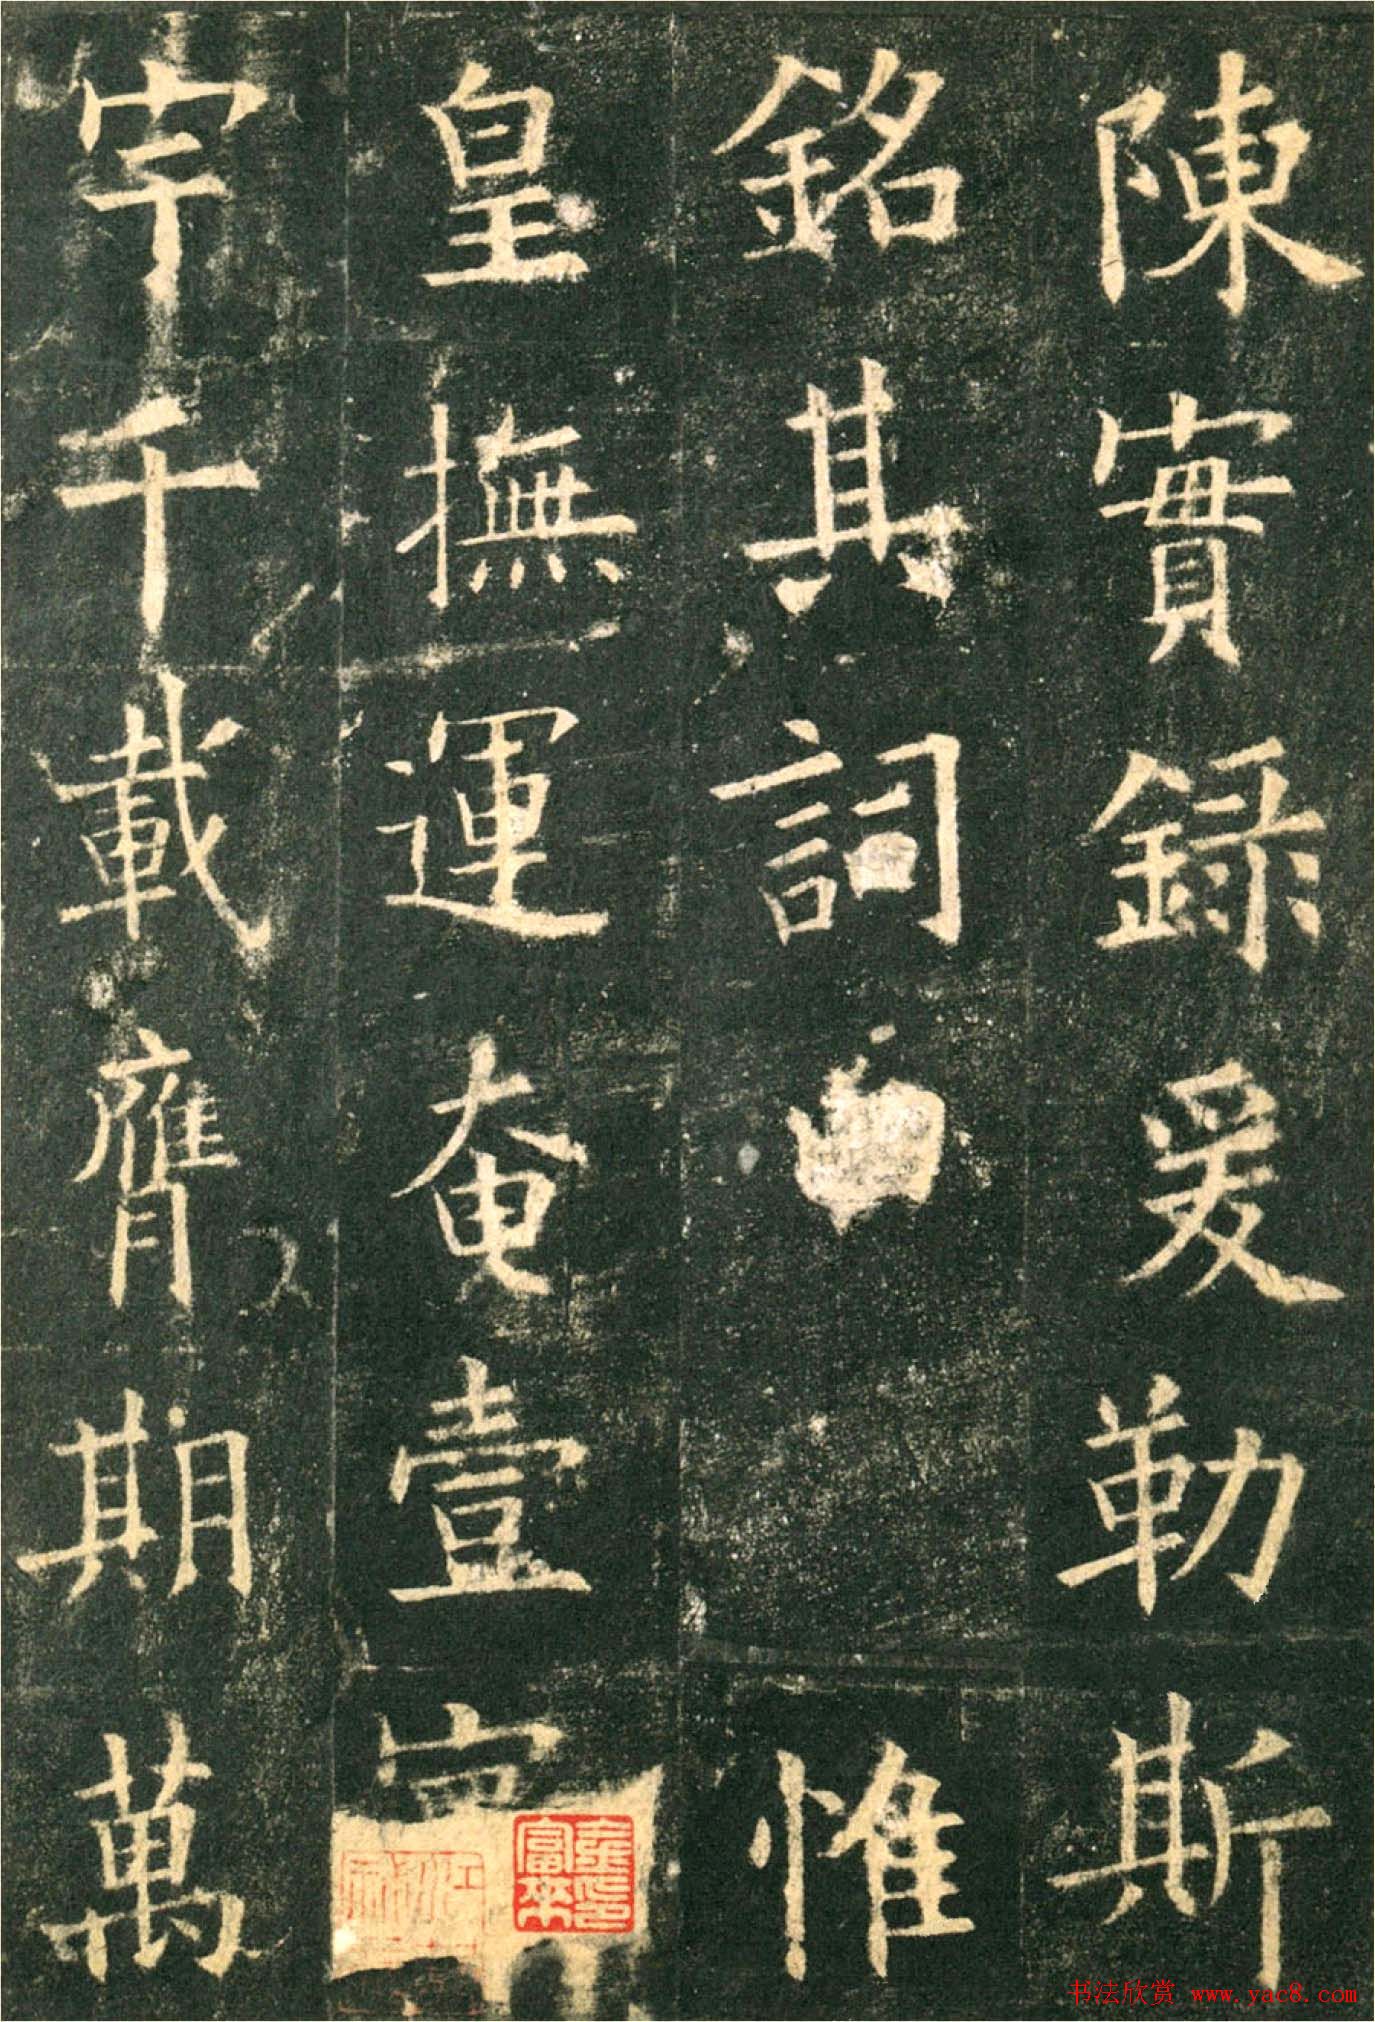 陳實錄爰勒斯
銘其詞 惟
皇撫運奄壹
宇千載膺期萬
书法欣赏 www.yac8.com